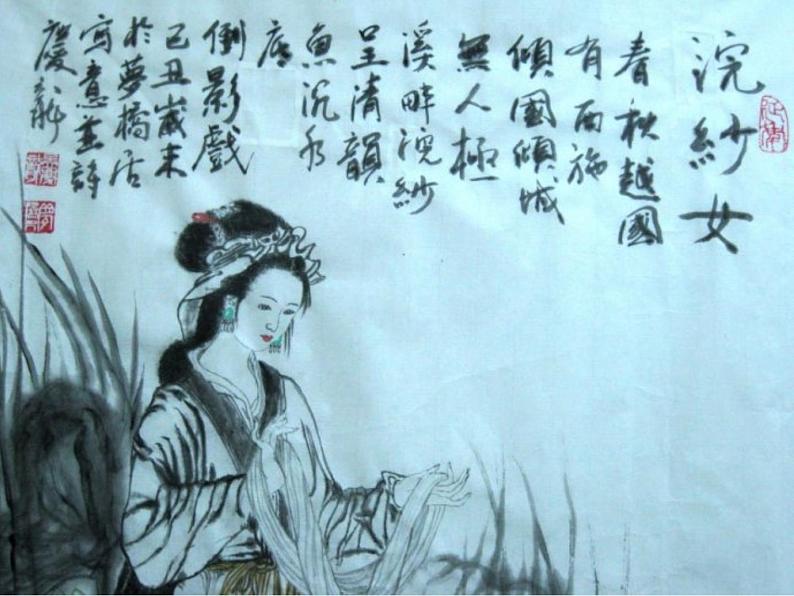 浣紗女
春秋越國
有西施
傾國傾城
無人極
溪畔浣紗
呈清韻
魚沉水
底
倒影戲
己丑歲末
於夢橋居
寫意並詩
慶